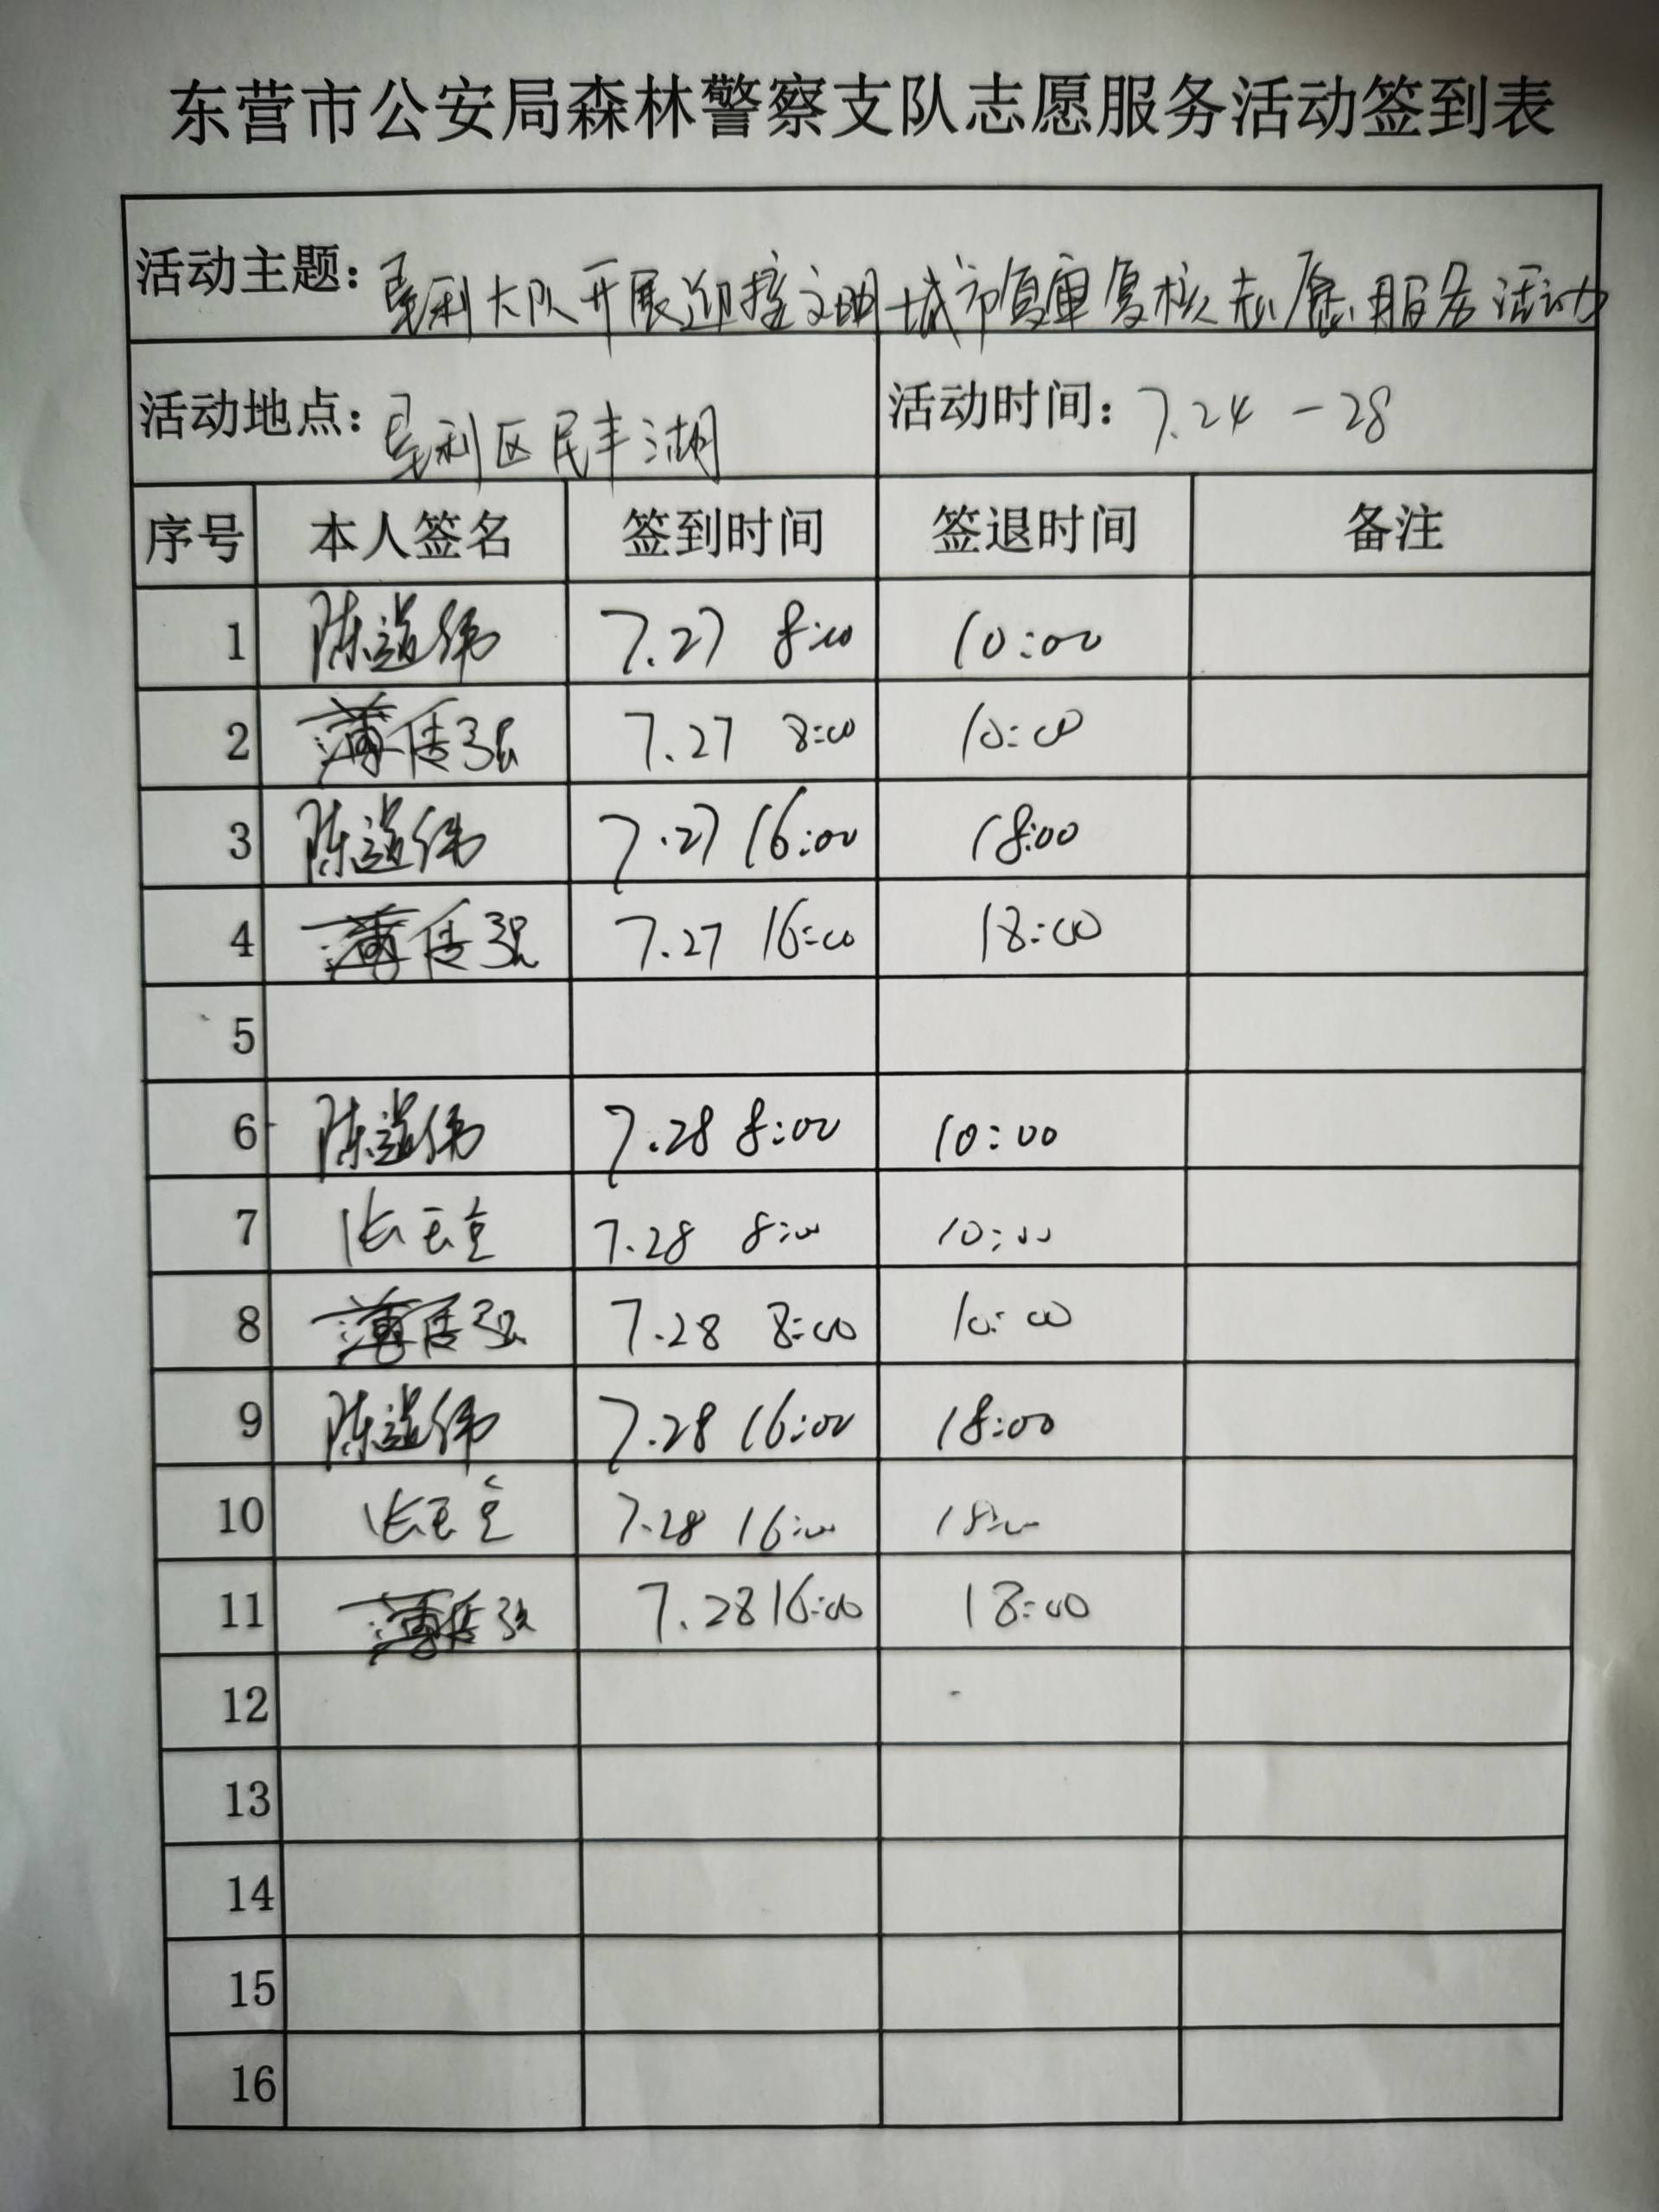 东营市公安局森林警察支队志愿服务活动签到表
活动主题：垦利大队开展迎接文明城市复审复核志愿服务活动
活动地点：垦利区民丰湖 活动时间：7.24-28
序号 本人签名 签到时间 签退时间 备注
1 陈道伟 7.27 8:00 10:00
2 薄 7.27 8:00 10:00
3 陈道伟 7.27 16:00 18:00
4 薄 7.27 16:00 18:00
5
6 陈道伟 7.28 8:00 10:00
7 张 7.28 8:00 10:00
8 薄 7.28 8:00 10:00
9 陈道伟 7.28 16:00 18:00
10 张 7.28 16:00 18:00
11 薄 7.28 16:00 18:00
12
13
14
15
16